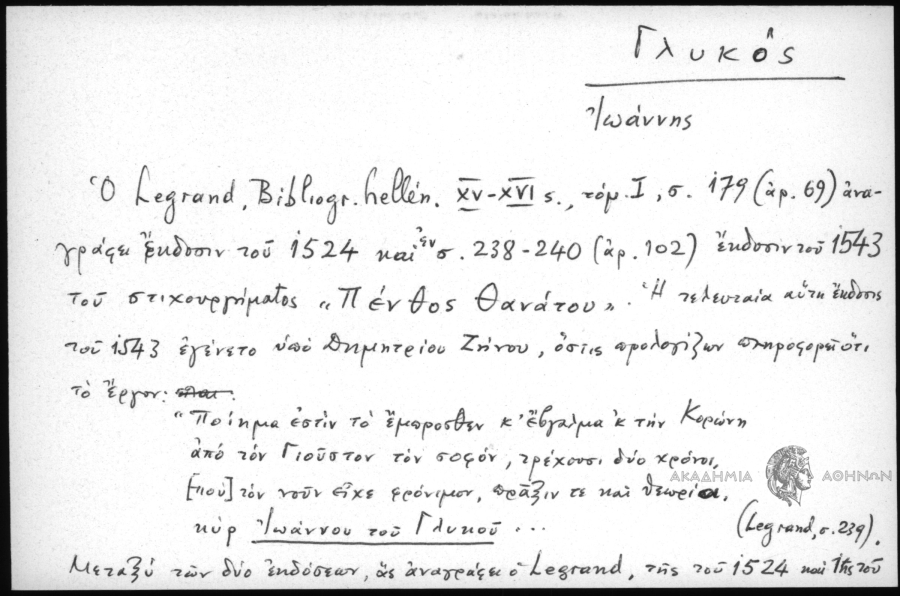 Γλυκὸς
Ἰωάννης
Ὁ Legrand, Bibliogr. hellén. XV-XVI s., τόμ. I, σ. 179 (ἀρ. 69) ἀνα-
γράφει ἔκδοσιν τοῦ 1524 καὶ ἐν σ. 238-240 (ἀρ. 102) ἔκδοσιν τοῦ 1543
τοῦ στιχουργήματος «Πένθος Θανάτου». Ἡ τελευταία αὕτη ἔκδοσις
τοῦ 1543 ἐγένετο ὑπὸ Δημητρίου Ζήνου, ὅστις προλογίζων πληροφορεῖ ὅτι
τὸ ἔργον:
"Ποίημα ἐστὶν τὸ ἔμπροσθεν κ' ἔβγαλμα 'κ τὴν Κορώνη
ἀπὸ τὸν Γιοῦστον τὸν σοφόν, τρέχουσι δύο χρόνοι,
[ποὺ] τὸν νοῦν εἶχε φρόνιμον, πρᾶξιν τε καὶ θεωρία,
κὺρ Ἰωάννου τοῦ Γλυκοῦ ...
(Legrand, σ. 239).
Μεταξὺ τῶν δύο ἐκδόσεων, ἃς ἀναγράφει ὁ Legrand, τῆς τοῦ 1524 καὶ τῆς τοῦ
ΑΚΑΔΗΜΙΑ ΑΘΗΝΩΝ